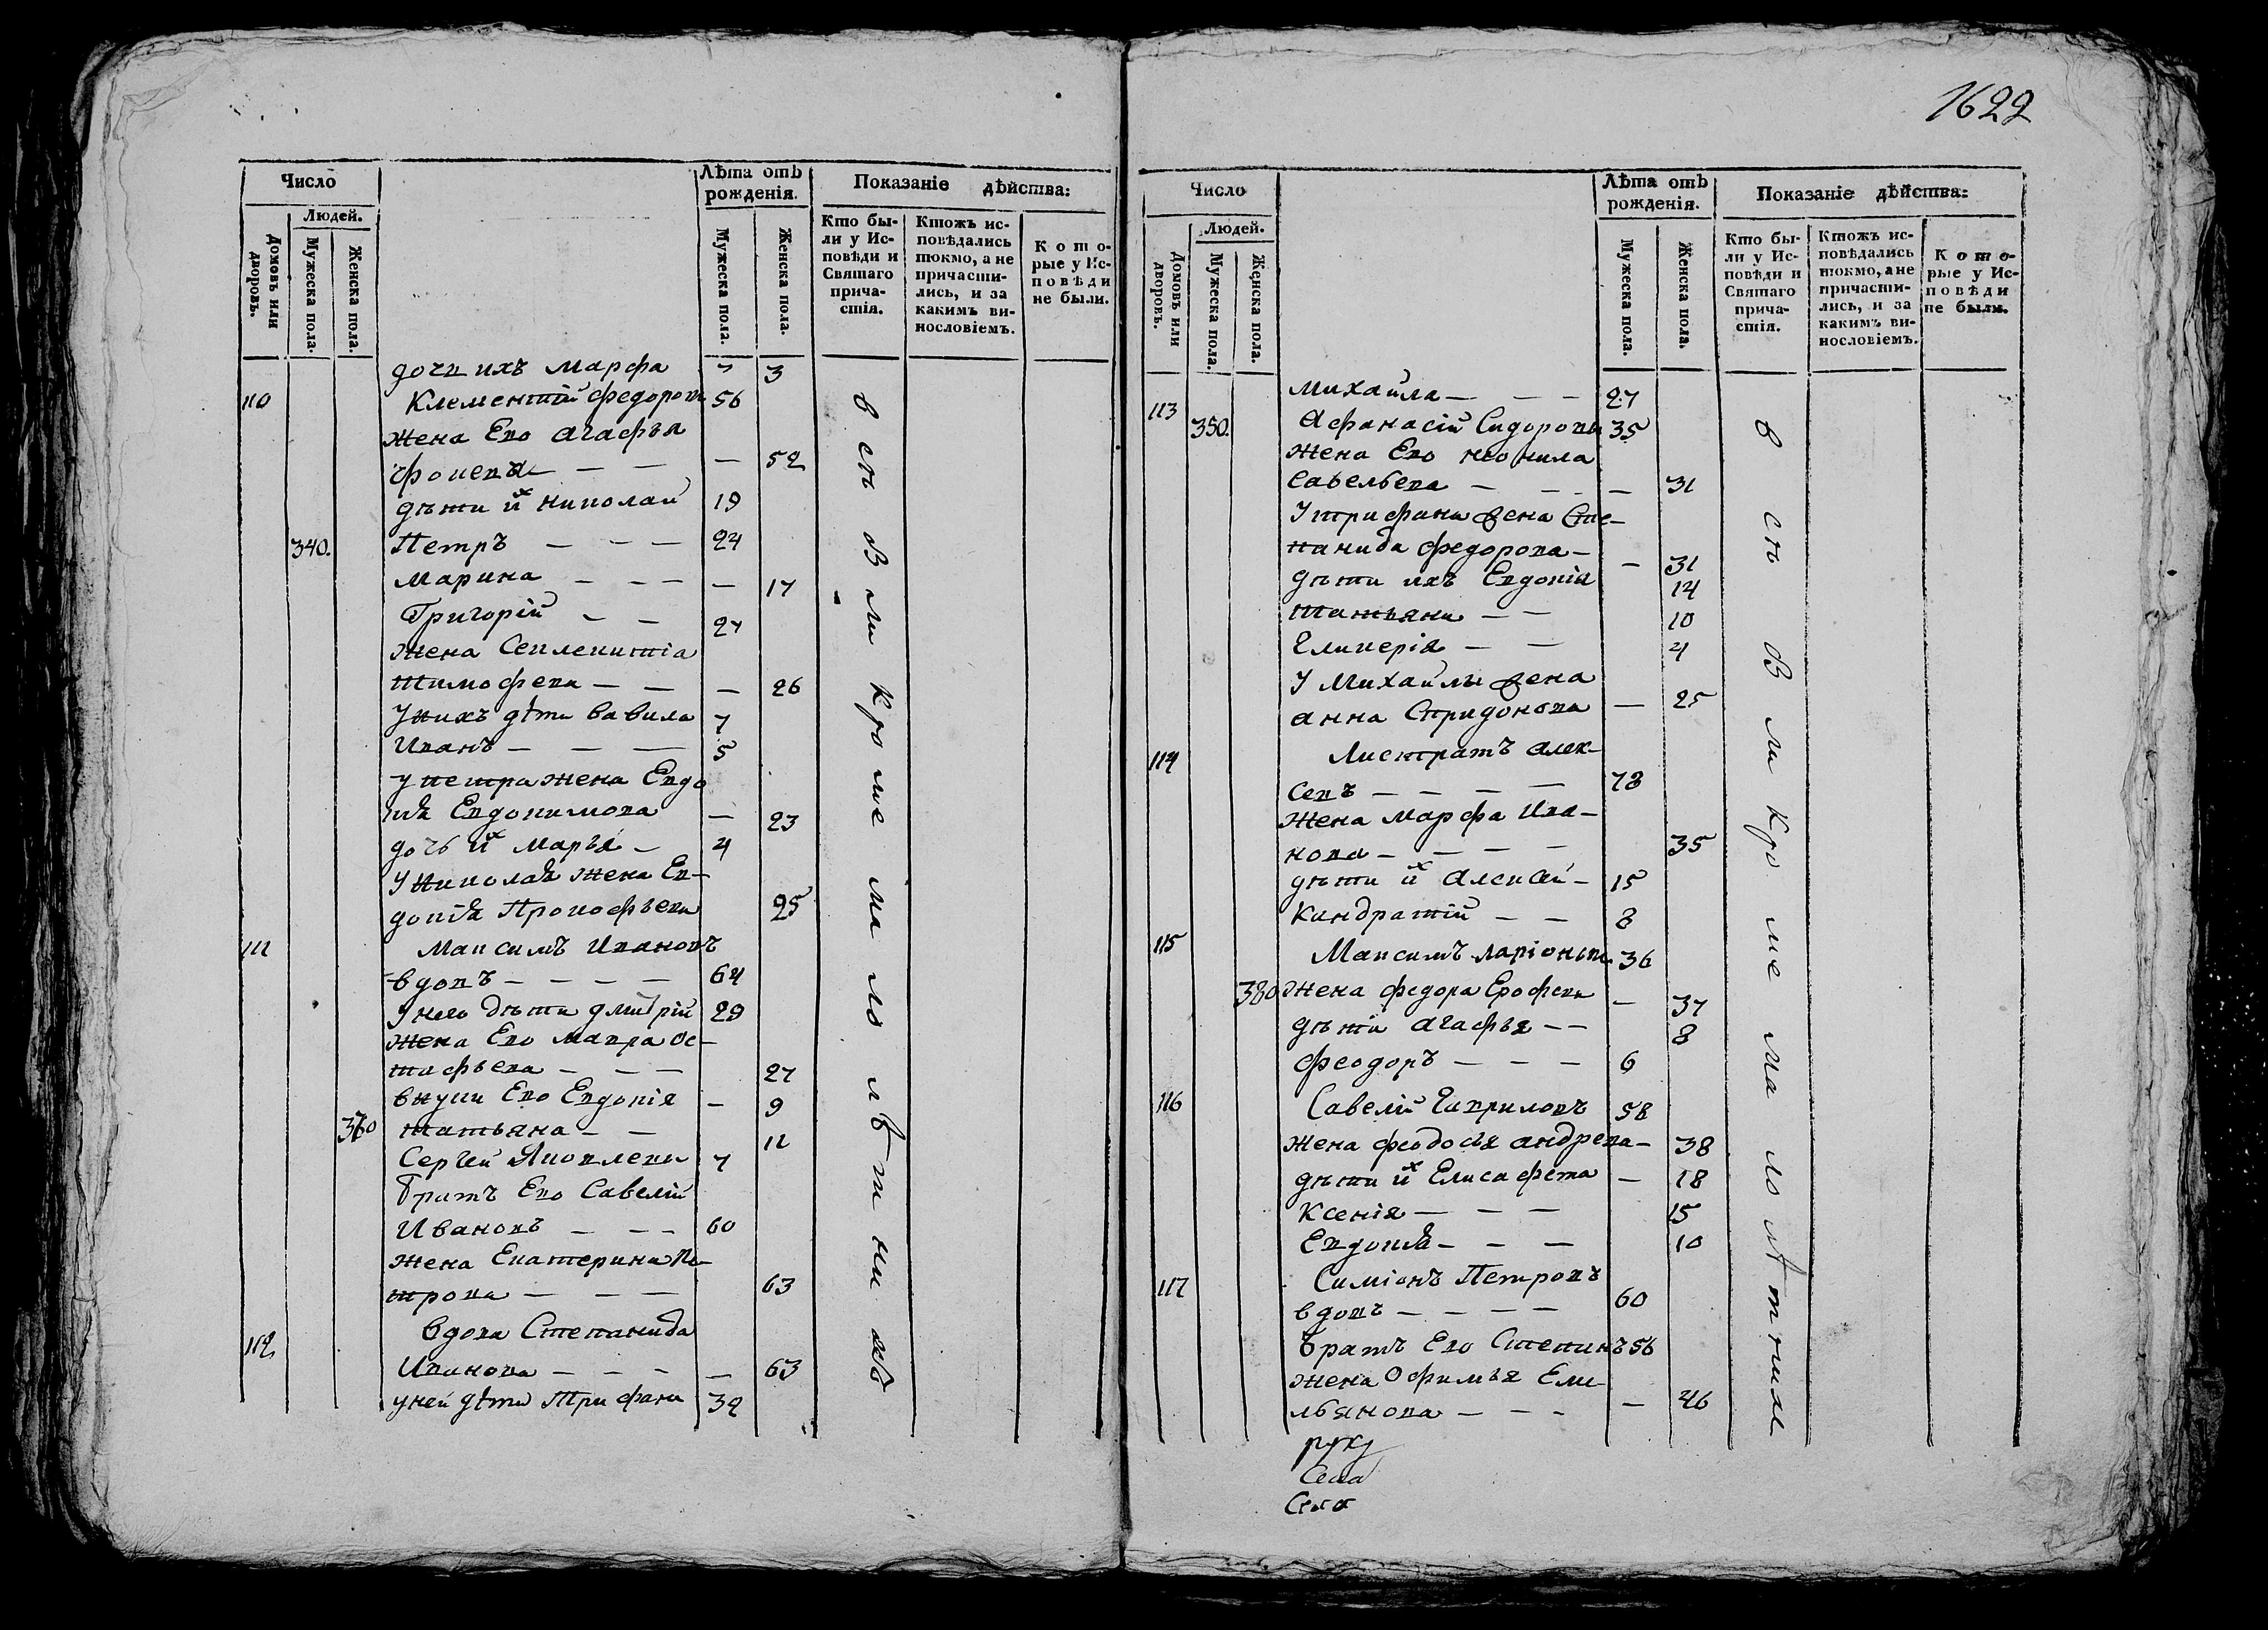 1622
Число
Людей.
Домовъ или дворовъ.
Мужеска пола.
Женска пола.
Лѣта отъ
рожденія.
Мужеска пола.
Женска пола.
Показаніе дѣйства:
Кто бы-
ли у Ис-
повѣди и
Святаго
прича-
стія.
Ктожъ ис-
повѣдались
токмо, а не
причасти-
лись, и за
какимъ ви-
нословіемъ.
Кото-
рые у Ис-
повѣди
не были.
дочп ихъ Марфа 3
110 Клементій Федоровъ 56
жена Ево Агафья
Фонева — — — 52
дѣти их Николай 19
340. Петръ — — — 24
Марина — — — — 17
Григорій — — 27
жена Секлетитіа
Тимофева — — — 26
У нихъ дѣти Вавила 7
Иванъ — — — 5
у петра жена Евдо
Евдокимова — 23
дочь их Марья — 4
У Николая жена Ев-
докія Прокофьева 25
111 Максимъ Ивановъ
вдовъ — — — — 64
У него дѣти Дмитрій 29
жена Ево Мавра Ос-
тафьева — — — 27
внуки Ево Евдокія — 9
370 татьяна — — 11
Сергей Яковлевъ 7
братъ Ево Савелій
Ивановъ — — — 60
жена Екатерина Пе-
трова — — — 63
112 вдова Степанида
Иванова — — — — 63
у ней дѣти Трифанъ 32
всѣ были кромѣ малолѣтнихъ
Число
Людей.
Домовъ или дворовъ.
Мужеска пола.
Женска пола.
Лѣта отъ
рожденія.
Мужеска пола.
Женска пола.
Показаніе дѣйства:
Кто бы-
ли у Ис-
повѣди и
Святаго
прича-
стія.
Ктожъ ис-
повѣдались
токмо, а не
причасти-
лись, и за
какимъ ви-
нословіемъ.
Кото-
рые у Ис-
повѣди
не были.
Михайла — — — 27
113 350. Афанасій Сидоровъ 35
жена Ево Неонила
Савельева — — — — 31
У Трифана жена Сте-
панида Федорова — — 31
дѣти ихъ Евдокія 14
татьяна — — 10
Гликерія — — 4
У Михайлы жена
анна Спридонова — 25
114 Листратъ Алек-
севъ — — — — 78
жена Марфа Ива-
нова — — — — 35
дѣти их Алексѣй — 15
Кандратій — — 8
115 Максимъ Ларіоновъ 36
380 жена Федора Ерофева — 37
дѣти Агафья — — 8
Феодоръ — — — 6
116 Савелій Гавриловъ 58
жена Феодосья Андрева — 38
дѣти их Елисафета — 18
Ксенія — — — 15
Евдокія — — — 10
117 Симіонъ Петровъ
вдовъ — — — — 60
братъ Ево Степанъ 56
жена Офимья Еме-
льянова — — — — 46
всѣ были кромѣ малолѣтних
руку
Села
Села